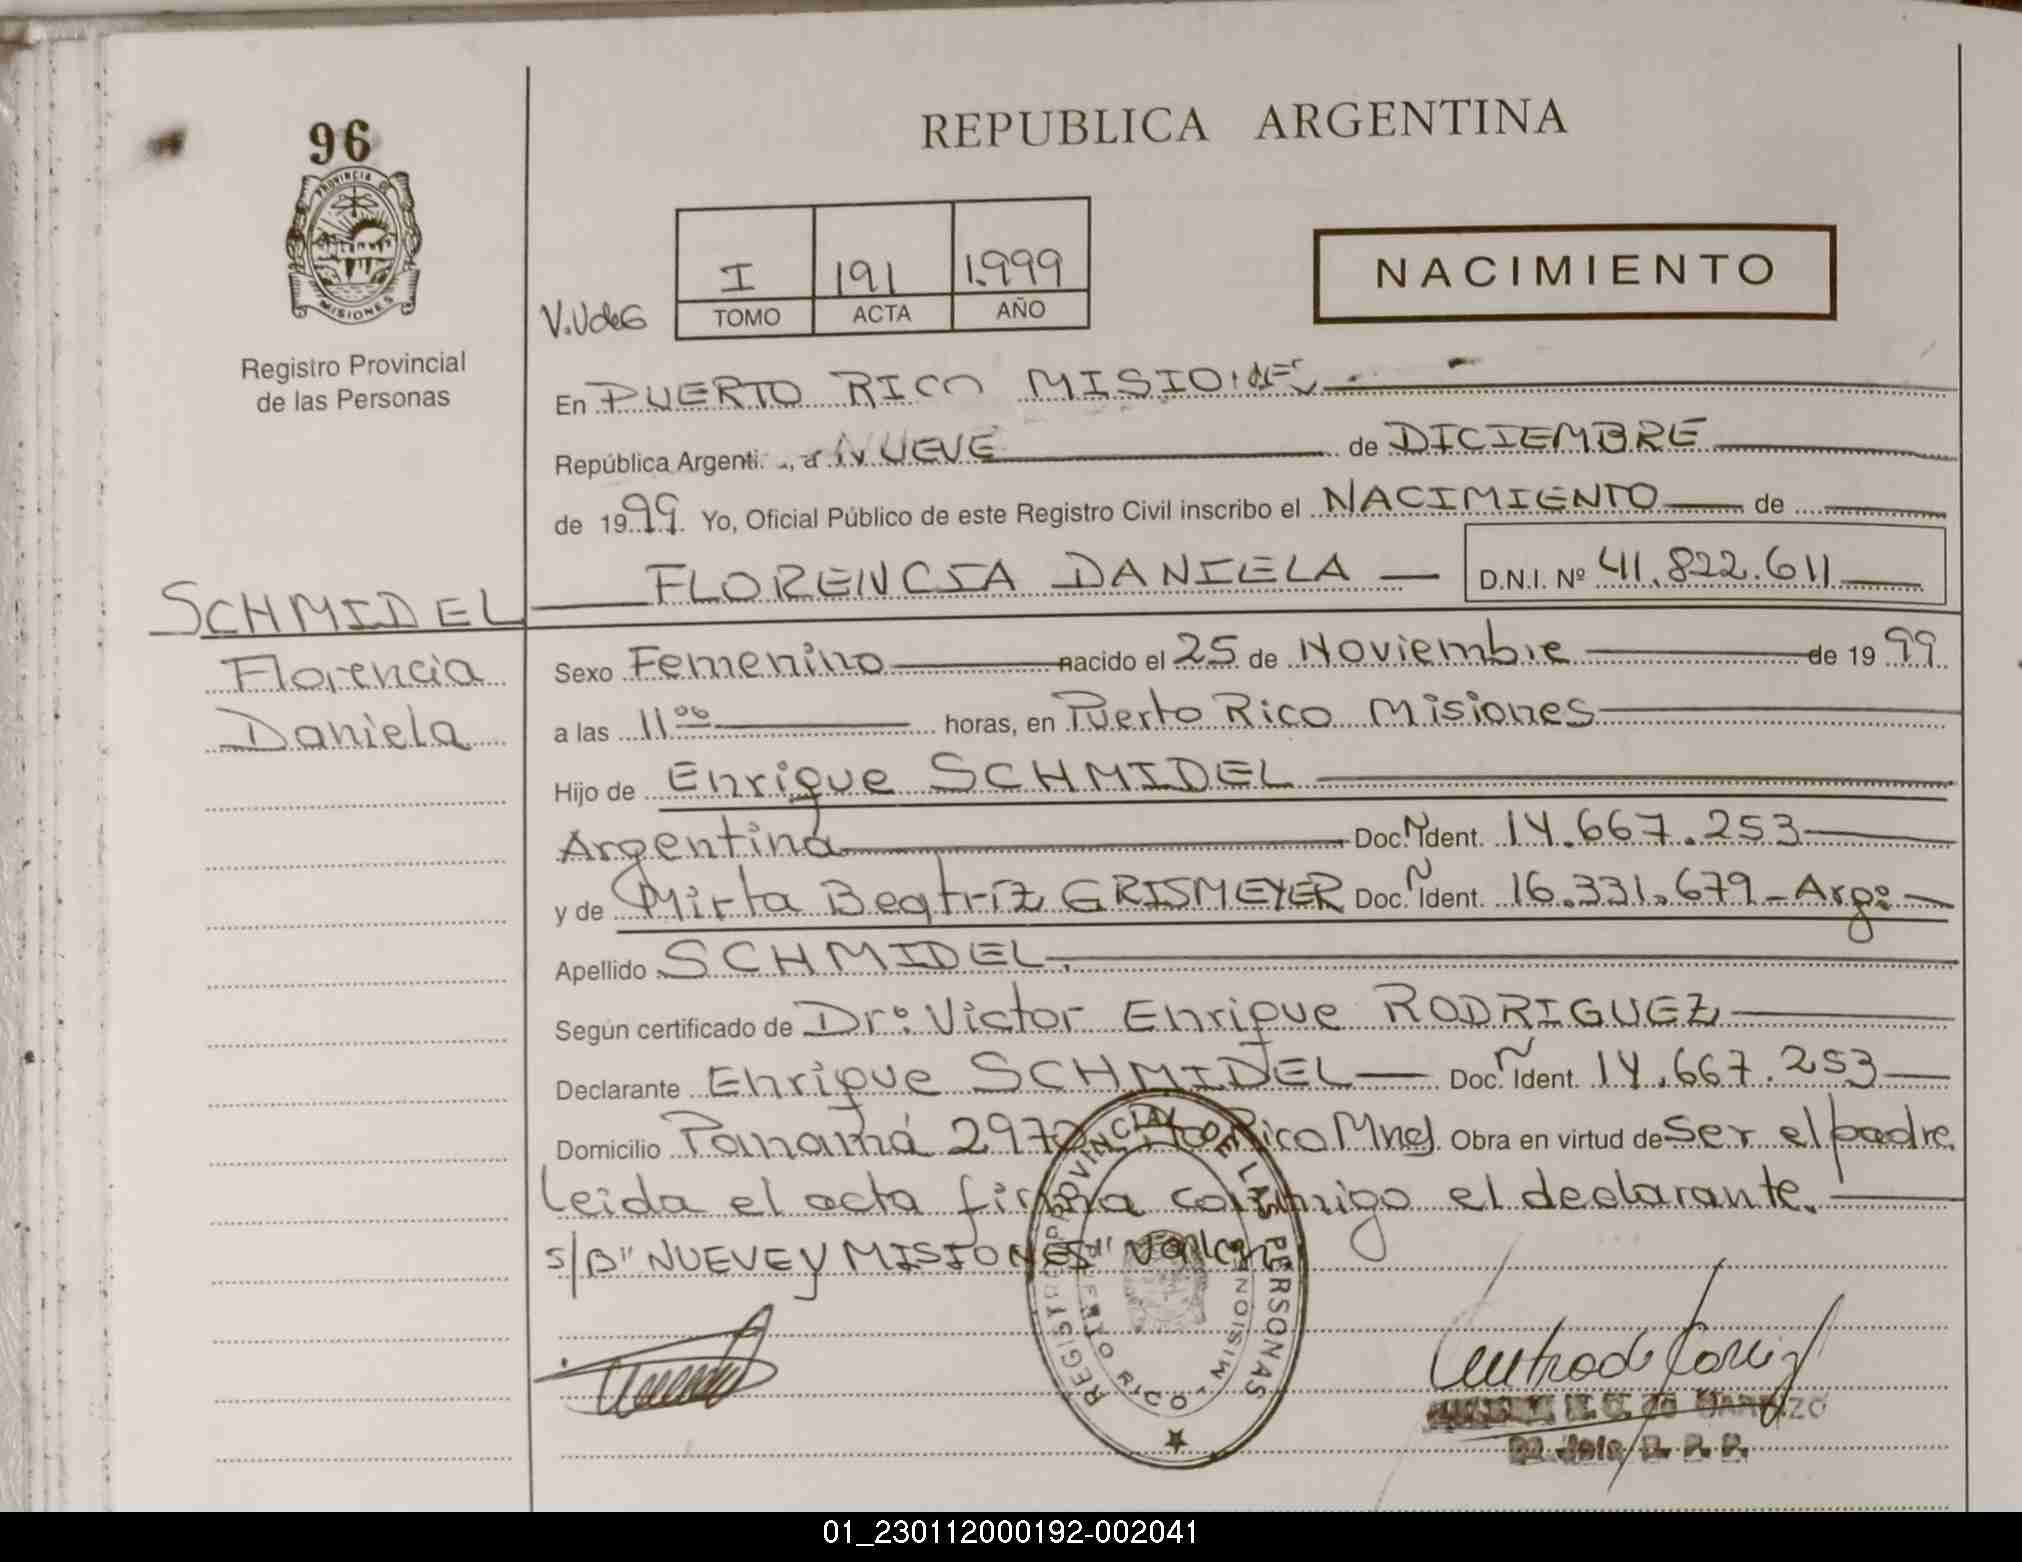 96
PROVINCIA DE
MISIONES
Registro Provincial
de las Personas
REPUBLICA ARGENTINA
I 191 1.999
V.UdeG TOMO ACTA AÑO
NACIMIENTO
En PUERTO RICO MISIONES
República Argenti. ., a NUEVE de DICIEMBRE
de 1999. Yo, Oficial Público de este Registro Civil inscribo el NACIMIENTO de
FLORENCIA DANIELA D.N.I. Nº 41.822.611
SCHMIDEL
Florencia
Daniela
Sexo Femenino nacido el 25 de Noviembre de 1999
a las 11ºº horas, en Puerto Rico Misiones
Hijo de Enrique SCHMIDEL
Argentina Doc. Ident. 14.667.253
y de Mirta Beatriz GRISMEYER Doc. Ident. 16.331.679 - Argº
Apellido SCHMIDEL.
Según certificado de Drº Victor Enrique RODRIGUEZ
Declarante Enrique SCHMIDEL Doc. Ident. 14.667.253
Domicilio Panamá 2970 Rico Mnes. Obra en virtud de Ser el padre
Leida el acta firma conmigo el declarante.
s/B" NUEVE y MISIONES" Valen
REGISTRO PROVINCIAL DE LAS PERSONAS
PUERTO RICO MISIONES
01_230112000192-002041